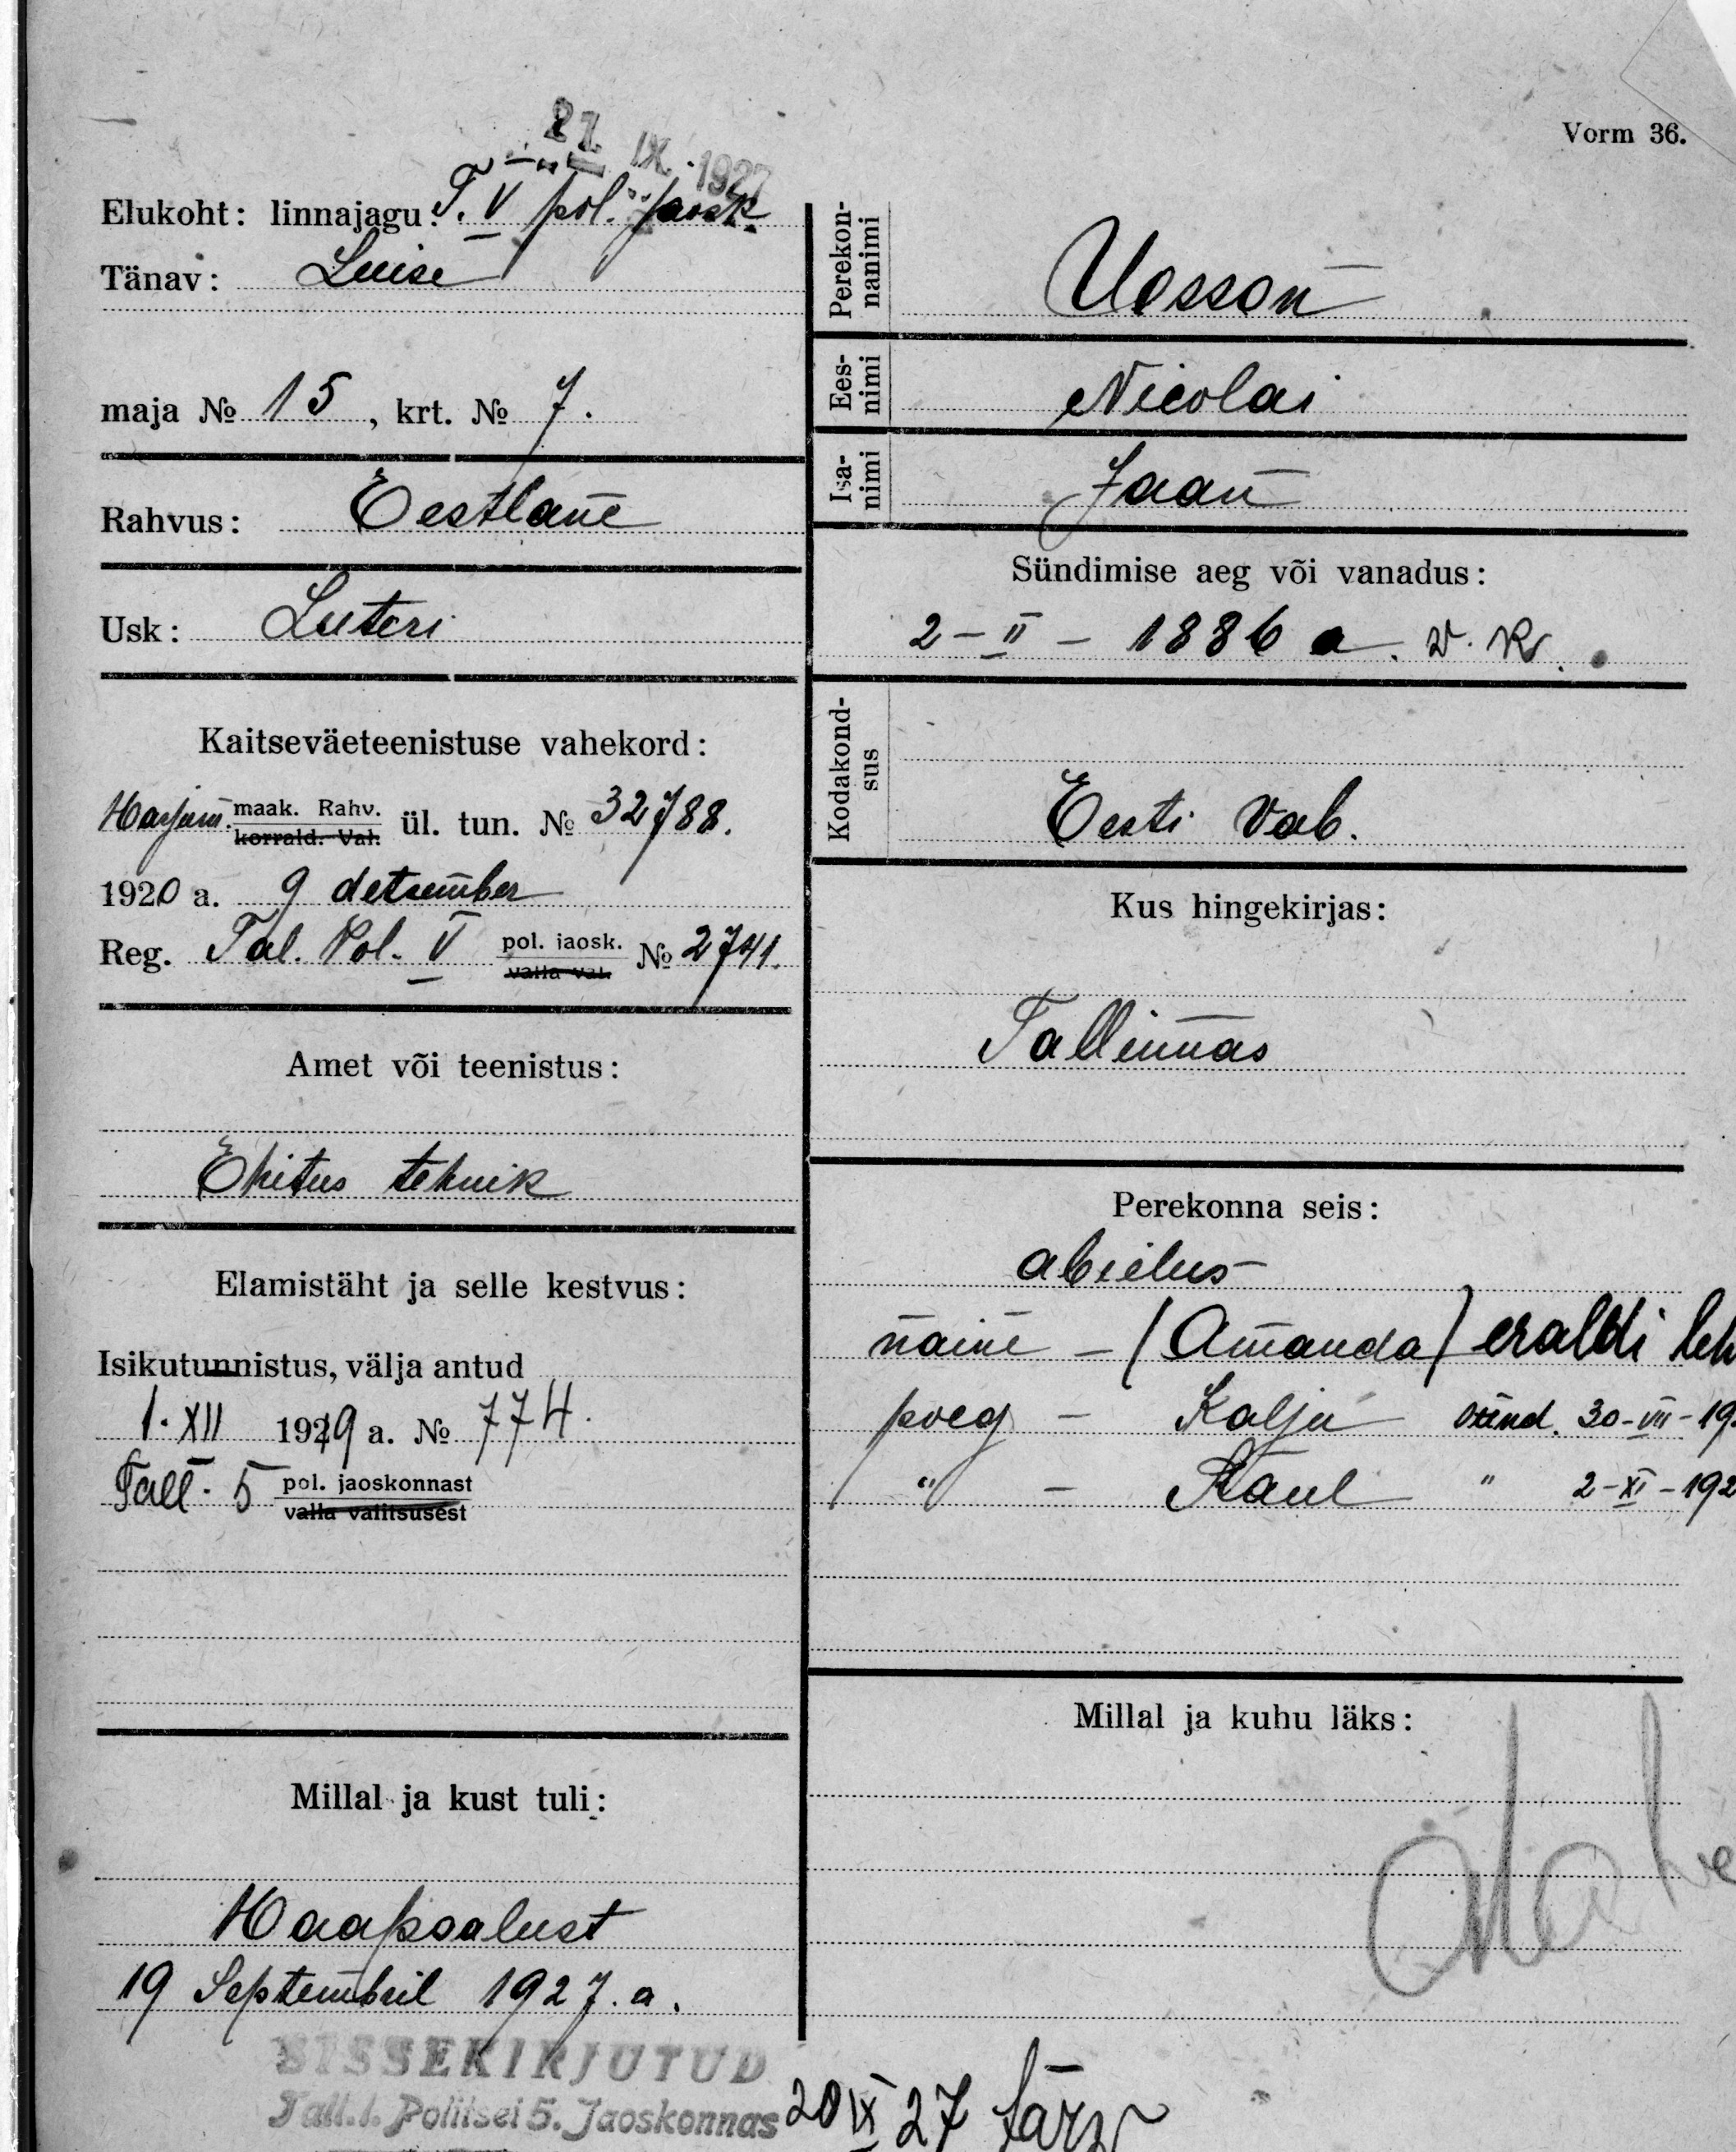 Vorm 36.
21. IX. 1927
Elukoht: linnajagu: T. V pol. jaosk.
Tänav: Luise
maja № 15, krt. № 7.
Rahvus: Eestlane
Usk: Luteri
Kaitseväeteenistuse vahekord:
Harjum. maak. Rahv. korrald. Val. ül. tun. № 32788.
1920 a. 9 detsember
Reg. Tal. Pol. V pol. jaosk. valla val. № 2741.
Amet või teenistus:
Ehitus tehnik
Elamistäht ja selle kestvus:
Isikutunnistus, välja antud
1. XII 1929 a. № 774.
Tall. 5 pol. jaoskonnast
valla valitsusest
Millal ja kust tuli:
Haapsalust
19 Septembril 1927. a.
SISSEKIRJUTUD
Tall. l. Politsei 5. Jaoskonnas
20 IX 27
Perekonnanimi
Uesson
Eesnimi
Nicolai
Isanimi
Jaan
Sündimise aeg või vanadus:
2-II-1886 a. v. k.
Kodakondsus
Eesti Vab.
Kus hingekirjas:
Tallinnas
Perekonna seis:
abielus
naine - (Amanda) eraldi leh
poeg - Kalju sünd. 30-VII-19
" - Raul " 2-XI-192
Millal ja kuhu läks: